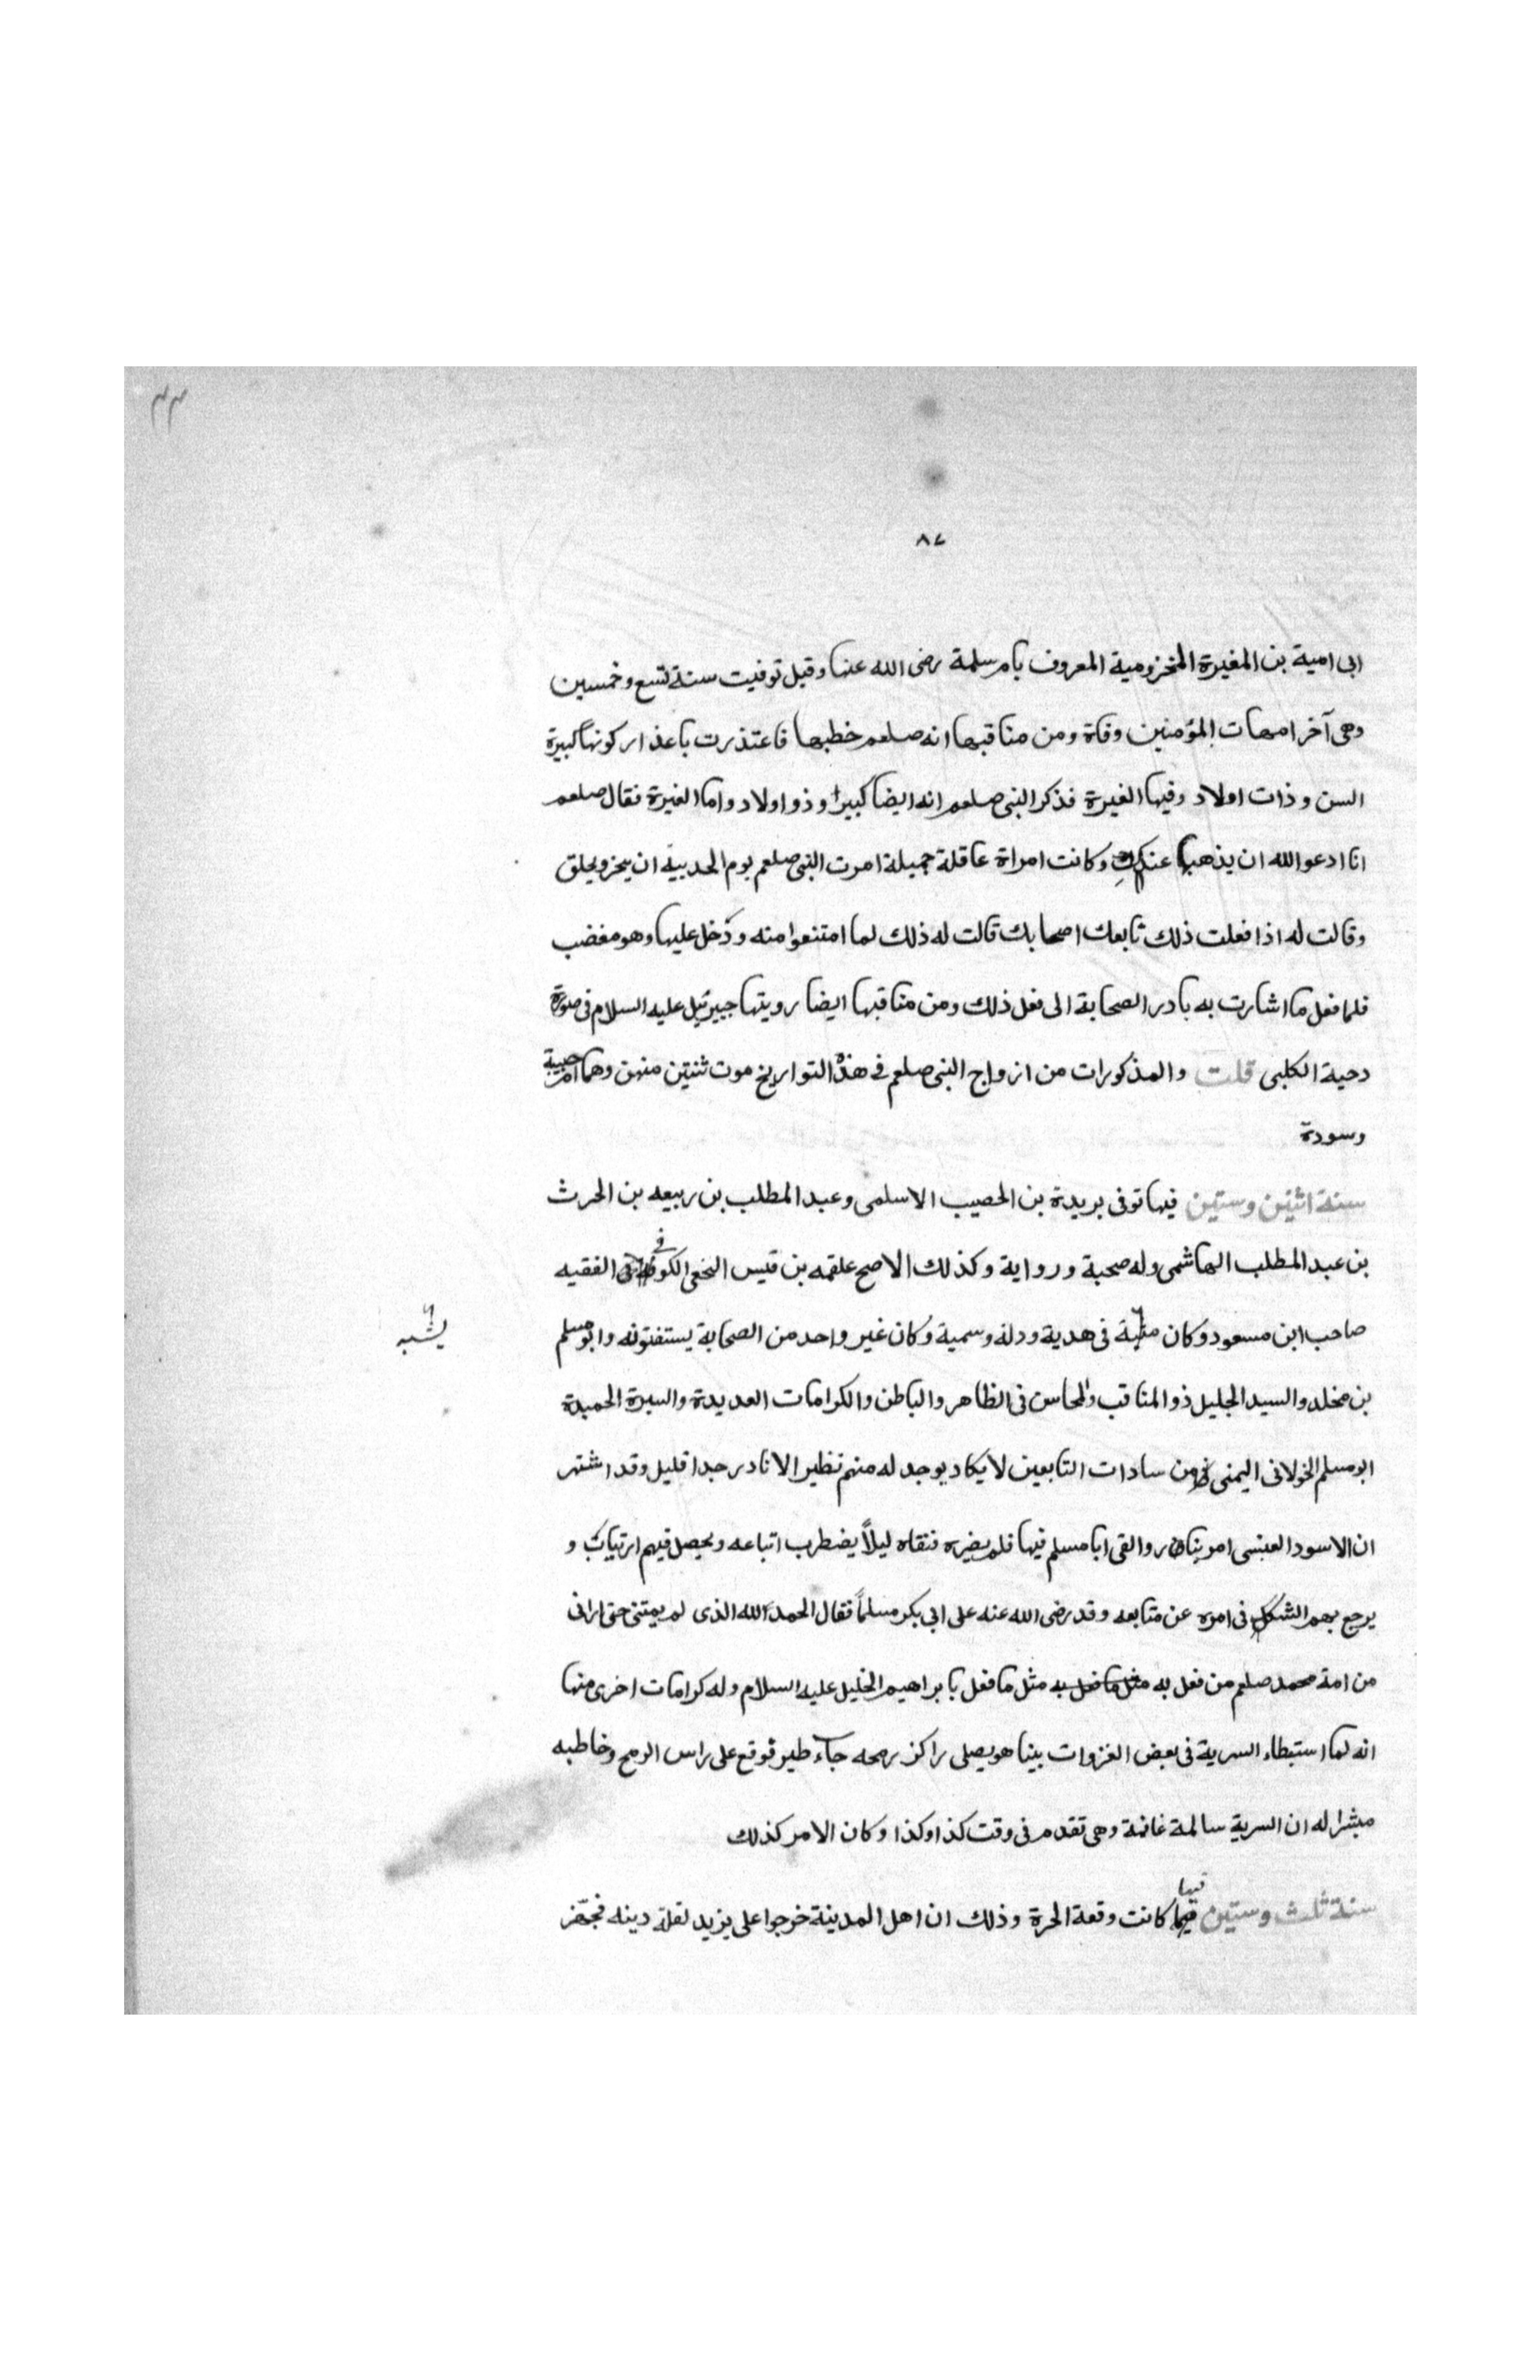 ٤٣
٨٧
ابى امية بن المغيرة المخزومية المعروف بام سلمة رضى الله عنها وقيل توفيت سنة تسع وخمسين
وهى آخر امهات المؤمنين وفاة ومن مناقبها انه صلعم خطبها فاعتذرت باعذار كونها كبيرة
السن وذات اولاد وفيها الغيرة فذكر النبى صلعم انه ايضا كبيرا وذو اولاد واما الغيرة فقال صلعم
انا ادعو الله ان يذهبها عنك وكانت امراة عاقلة جميلة امرت النبى صلعم يوم الحديبية ان ينحر ويحلق
وقالت له اذا فعلت ذلك تابعك اصحابك قالت له ذلك لما امتنعوا منه ودخل عليها وهو مغضب
فلما فعل ما اشارت به بادر الصحابة الى فعل ذلك ومن مناقبها ايضا رويتها جبيرئيل عليه السلام فى صورة
دحية الكلبى قلت والمذكورات من ازواج النبى صلعم فى هذه التواريخ موت ثنتين منهن وهما ام حبيبة
وسودة
سنة اثنين وستين فيها توفى بريدة بن الحصيب الاسلمى وعبد المطلب بن ربيعه بن الحرث
بن عبد المطلب الهاشمى وله صحبة ورواية وكذلك الاصح علقمه بن قيس النخعى الكوفى الفقيه
صاحب ابن مسعود وكان فى هدية ودلة وسمية وكان غير واحد من الصحابة يستفتونه وابو مسلم
يشبه
بن مخلد والسيد الجليل ذو المناقب والمحاسن فى الظاهر والباطن والكرامات العديدة والسيرة الحميدة
ابو مسلم الخولانى اليمنى من سادات التابعين لا يكاد يوجد له منهم نظير الا نادر جدا قليل وقد اشتهر
ان الاسود العنسى امر بنار والقى ابا مسلم فيها فلم يضره فنفاه ليلاً يضطرب اتباعه ويحصل فيهم ارتياب و
يرجع بهم الشك فى امره عن متابعه وقد رضى الله عنه على ابى بكر مسلماً فقال الحمد لله الذى لم يمتنى حتى ارانى
من امة محمد صلعم من فعل به مثل ما فعل به مثل ما فعل بابراهيم الخليل عليه السلام وله كرامات اخرى منها
انه لما استبطاء السرية فى بعض الغزوات بينا هو يصلى راكز رمحه جآء طير فوقع على راس الرمح وخاطبه
مبشرا له ان السرية سالمة غانمة وهى تقدم فى وقت كذا وكذا وكان الامر كذلك
سنة ثلث وستين فيها كانت وقعة الحرة وذلك ان اهل المدينة خرجوا على يزيد لقلة دينه فجهّز